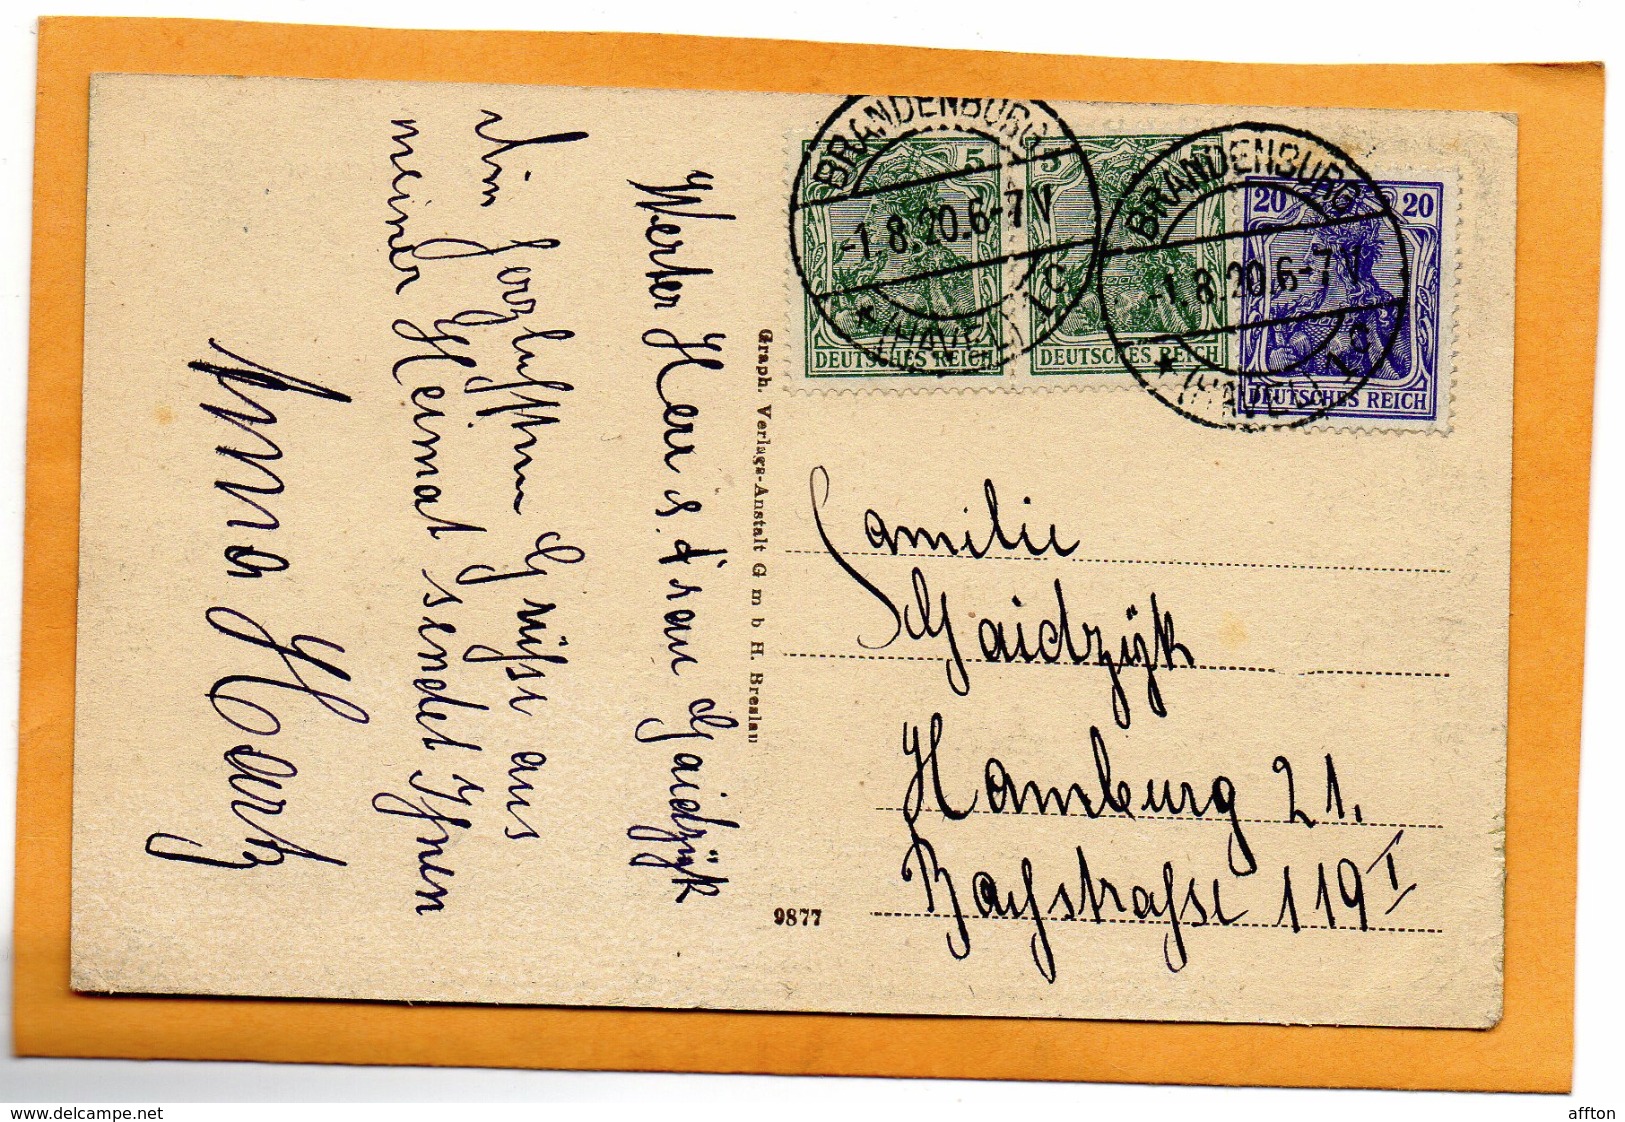 BRANDENBURG
-1.8.20.6-7V
* (HAVEL) 1 c
BRANDENBURG
-1.8.20.6-7V
* (HAVEL) 1 c
5
5
20 20
DEUTSCHES REICH
DEUTSCHES REICH
DEUTSCHES REICH
Werter Herr u. Frau Gaidzijk
Die herzlichsten Grüße aus
meiner Heimat sendet Ihnen
Anna Hartz
Graph. Verlags-Anstalt G m b H. Breslau
Familie
Gaidzijk
Hamburg 21.
Bachstraße 119 I
9877
www.delcampe.net
affton